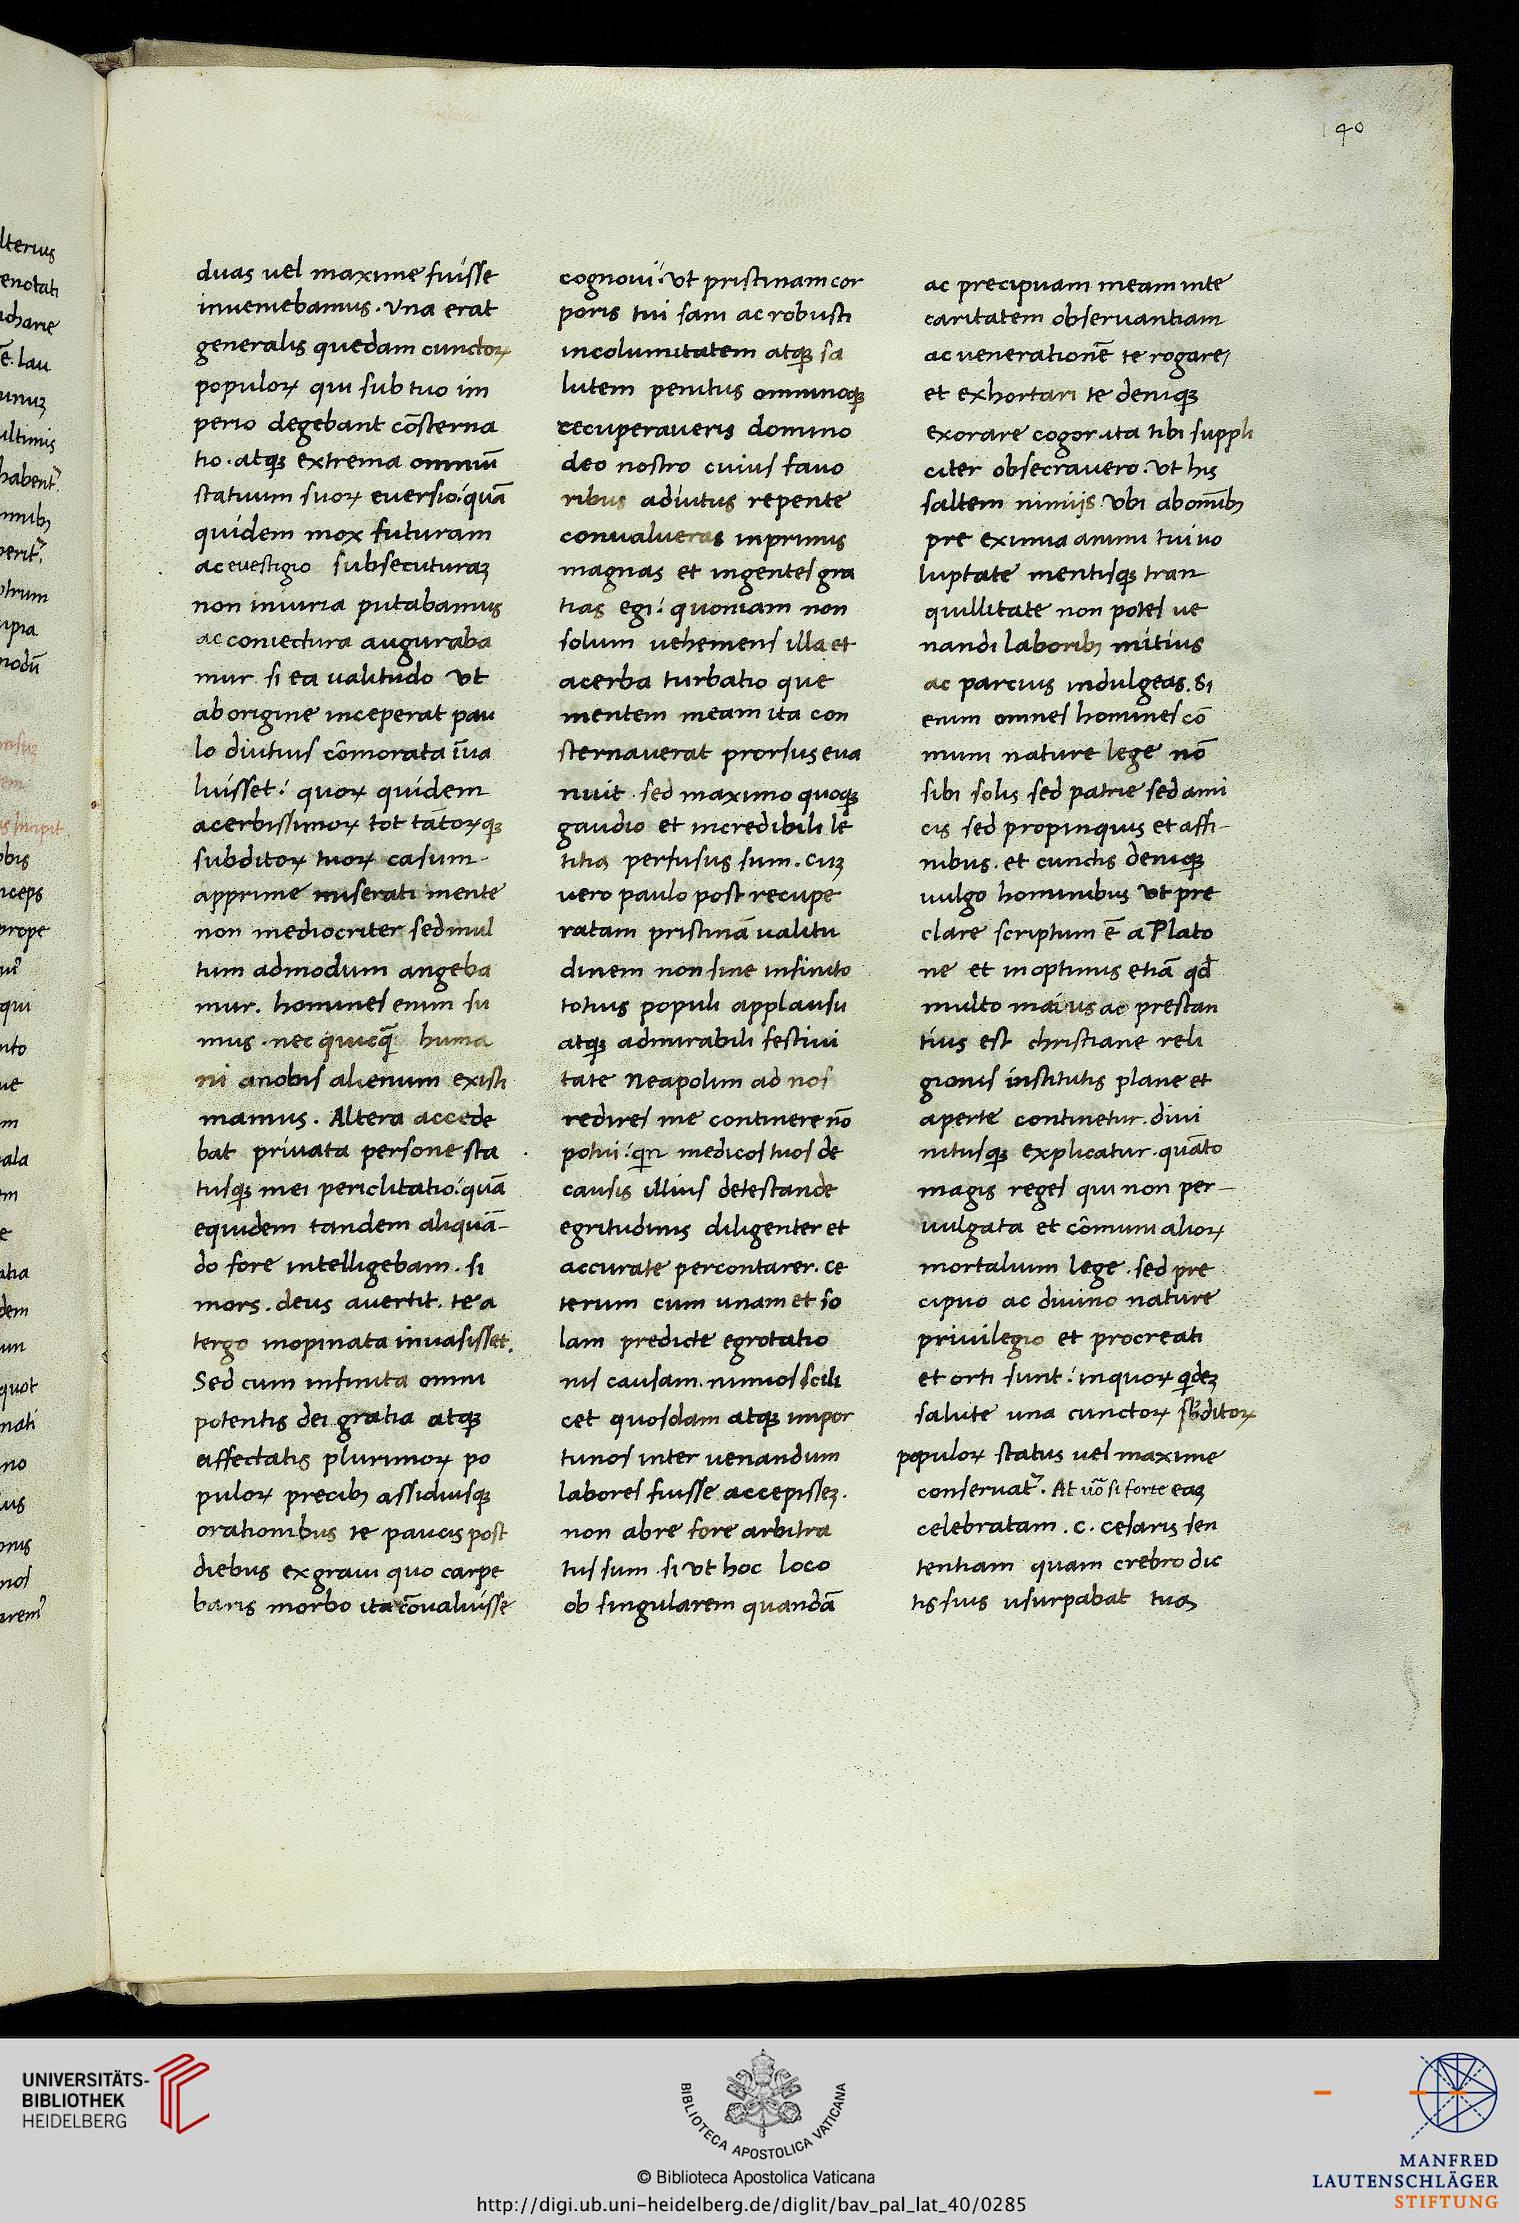 140
duas vel maxime fuisse
inveniebamus. Una erat
generalis quedam cunctoꝝ
populoꝝ qui sub tuo im
perio degebant cōsterna
tio. atqꝫ extrema omniū
statuum suoꝝ eversio: quā
quidem mox futuram
ac evestigio subsecuturaꝫ
non iniuria putabamus
ac coniectura auguraba
mur si ea valitudo ut
ab origine inceperat pau
lo diutius cōmorata īva
luisset: quoꝝ quidem
acerbissimoꝝ tot tātoꝝqꝫ
subditoꝝ tuoꝝ casum
apprime miserati mente
non mediocriter sed mul
tum admodum angeba
mur. homines enim su
mus. nec quicq̄ huma
ni a nobis alienum existi
mamus. Altera accede
bat privata persone sta
tusqꝫ mei periclitatio: quā
equidem tandem aliquā-
do fore intelligebam. si
mors. deus avertit. te a
tergo inopinata invasisset.
Sed cum infinita omni
potentis dei gratia atqꝫ
affectatis plurimoꝝ po
puloꝝ precibꝫ assiduisqꝫ
orationibus te paucis post
diebus ex gravi quo carpe
baris morbo ita cōvaluisse
cognovi: Ut pristinam cor
poris tui sani ac robusti
incolumitatem atqꝫ sa
lutem penitus omninoqꝫ
recuperaveris domino
deo nostro cuius favo
ribus adiutus repente
convalueras inprimis
magnas et ingentes gra
tias egi: quoniam non
solum vehemens illa et
acerba turbatio que
mentem meam ita con
sternaverat prorsus eva
nuit. sed maximo quoqꝫ
gaudio et incredibili le
titia perfusus sum. Cuꝫ
vero paulo post recupe
ratam pristinā valitu
dinem non sine infinito
totius populi applausu
atqꝫ admirabili festivi
tate Neapolim ad nos
redires me continere nō
potui: qin medicos tuos de
causis illius detestande
egritudinis diligenter et
accurate percontarer. ce
terum cum unam et so
lam predicte egrotatio
nis causam. nimios scili
cet quosdam atqꝫ impor
tunos inter venandum
labores fuisse accepisseꝫ.
non abre fore arbitra
tus sum. si ut hoc loco
ob singularem quandā
ac precipuam meam in te
caritatem observantiam
ac venerationē te rogare/
et exhortari te deniqꝫ
exorare cogor. ita tibi suppli
citer obsecravero. Ut his
saltem nimijs ubi ab omībꝫ
pre eximia animi tui vo
luptate mentisqꝫ tran
quillitate non potes ve
nandi laboribꝫ mitius
ac parcius indulgeas. Si
enim omnes homines cō
muni nature lege nō
sibi solis sed patrie sed ami
cis sed propinquis et affi-
nibus. et cunctis deniqꝫ
vulgo hominibus ut pre
clare scriptum ē a Plato
ne et in optimis etiā qđ
multo maius ac prestan
tius est christiane reli
gionis institutis plane et
aperte continetur. divi
nitusqꝫ explicatur. quāto
magis reges qui non per-
vulgata et cōmuni alioꝝ
mortalium lege. sed pre
cipuo ac divino nature
privilegio et procreati
et orti sunt: in quoꝝ qideꝫ
salute una cunctoꝝ sƀditoꝝ
populoꝝ status vel maxime
conservat᷑. At ūo si forte eaꝫ
celebratam. c. cesaris sen
tentiam quam crebro dic
tis suis usurpabat tuas
UNIVERSITÄTS-
BIBLIOTHEK
HEIDELBERG
BIBLIOTECA APOSTOLICA VATICANA
© Biblioteca Apostolica Vaticana
http://digi.ub.uni-heidelberg.de/diglit/bav_pal_lat_40/0285
MANFRED
LAUTENSCHLÄGER
STIFTUNG